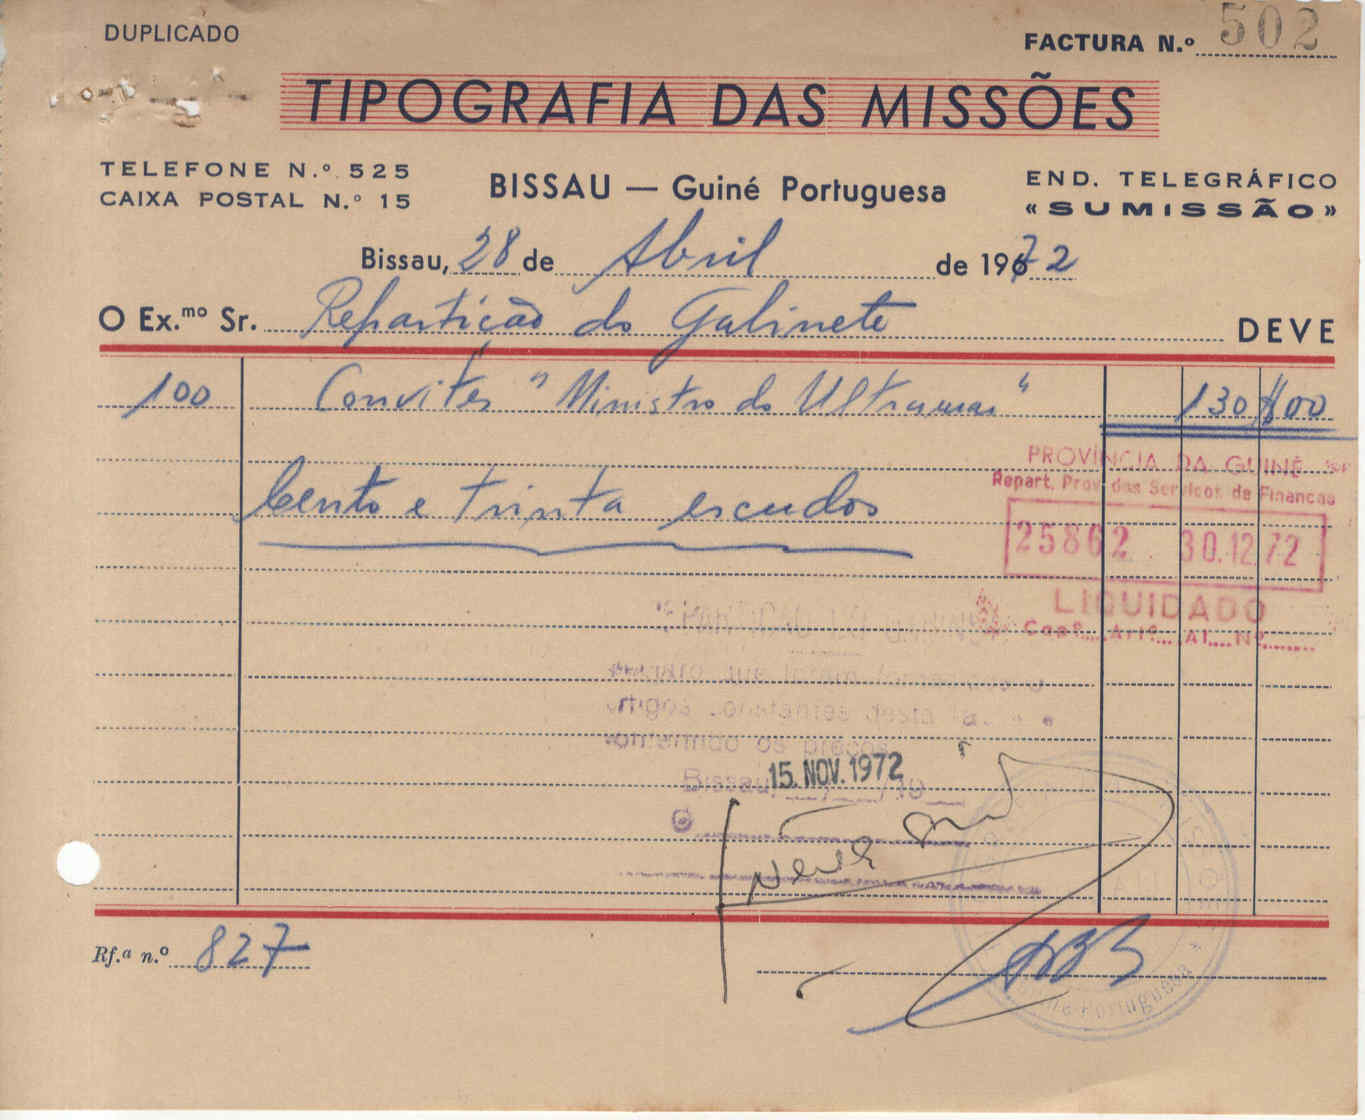 DUPLICADO
FACTURA N.º 502
TIPOGRAFIA DAS MISSÕES
TELEFONE N.º 525
CAIXA POSTAL N.º 15
BISSAU — Guiné Portuguesa
END. TELEGRÁFICO
«SUMISSÃO»
Bissau, 28 de Abril de 1972
O Ex.mo Sr. Repartição do Gabinete DEVE
100 Convites "Ministro do Ultramar" 130$00
Cento e trinta escudos
PROVÍNCIA DA GUINÉ
Repart. Prov. dos Serviços de Finanças
25862 30.12.72
LIQUIDADO
Capº... Artº... Al.... Nº.......
os preços
Bissau, 15. NOV. 1972
O
Rf.ª n.º 827
Portuguesa